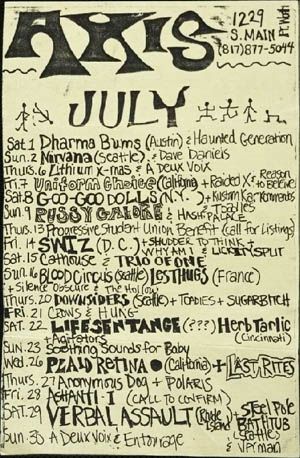 AXIS
1229
S. MAIN Ft. Worth
(817)877-5044
JULY
Sat. 1 Dharma Bums (Austin) & Haunted Generation
Sun. 2 Nirvana (Seattle) & Dave Daniels
Thurs. 6 Lithium X-mas & A Deux Voix
Fri. 7 Uniform Choice (California) + Raided X + Reason to Believe
Sat 8 Goo-Goo Dolls (N.Y.) + Kustom Kar Kommandos
Sun. 9 PUSSY GALORE & Trolies
HASH PALACE
Thurs. 13 Progressive Student Union Benefit (call for listings)
Fri. 14 SWIZ (D.C.) + SHUDDER TO THINK +
WHY AM I & LICKETY SPLIT
Sat. 15 Cathouse & TRIO OF ONE
Sun. 16 BLOOD CIRCUS (Seattle) LES THUGS (France)
+ Silence Obscure & The Hollow
Thurs. 20 DOWNSIDERS (Seattle) + TOADIES + SUGARBITCH
FRI. 21 CROWS & HUNG
SAT. 22 LIFE SENTANCE (???) Herb Tarlic
+ Agitators (Cincinnati)
SUN. 23 Soothing Sounds for Baby
Wed. 26 PLAID RETINA (California) + LAST RITES
Thurs. 27 Anonymous Dog + POLARIS
Fri. 28 ASHANTI-I (CALL TO CONFIRM)
SAT. 29 VERBAL ASSAULT (Rhode Island) + STEEL POLE BATHTUB
(Seattle)
& VERMAN
Sun. 30 A Deux Voix & Entourage